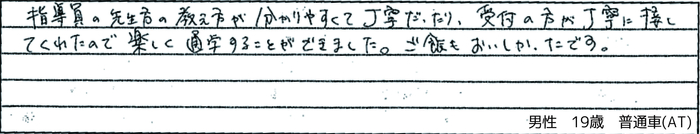 指導員の先生方の教え方が分かりやすくて丁寧だったり、受付の方が丁寧に接し
てくれたので楽しく通学することができました。ご飯もおいしかったです。
男性 19歳 普通車(AT)